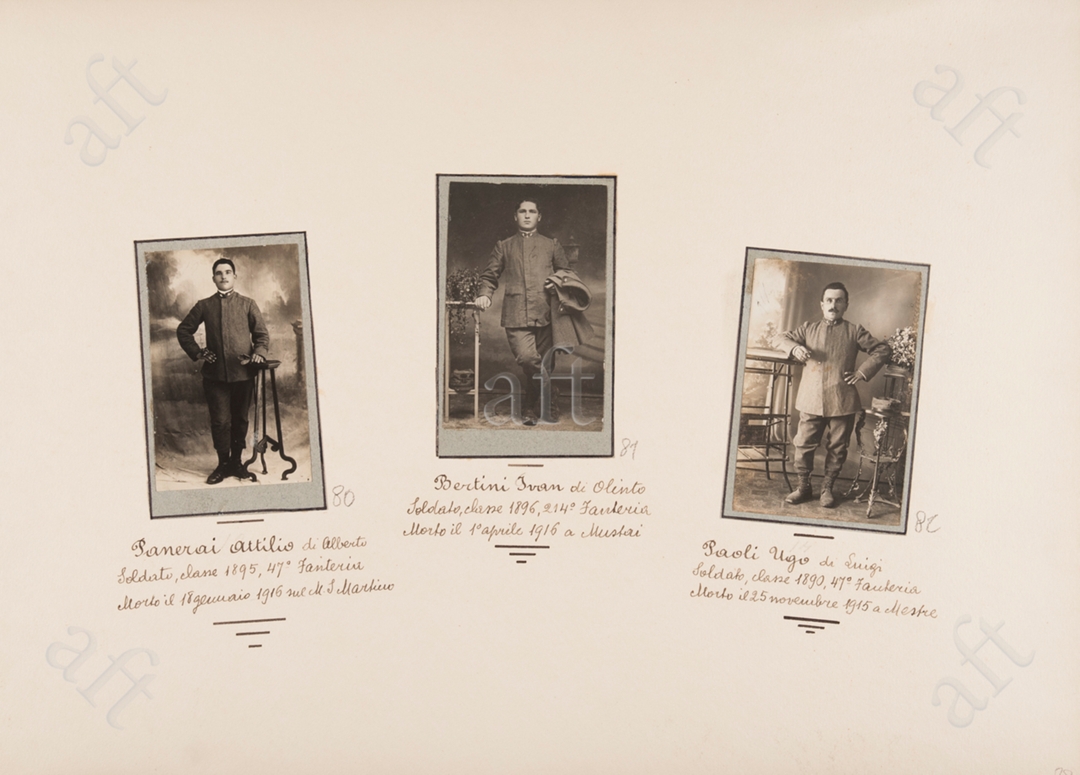 aft
aft
80
Panerai Attilio di Alberto
Soldato, classe 1895, 47° Fanteria
Morto il 18 gennaio 1916 sul M. S. Martino
aft
81
Bertini Ivan di Olinto
Soldato, classe 1896, 214° Fanteria
Morto il 1° aprile 1916 a Mustai
82
Paoli Ugo di Luigi
Soldato, classe 1890, 47° Fanteria
Morto il 25 novembre 1915 a Mestre
aft
aft